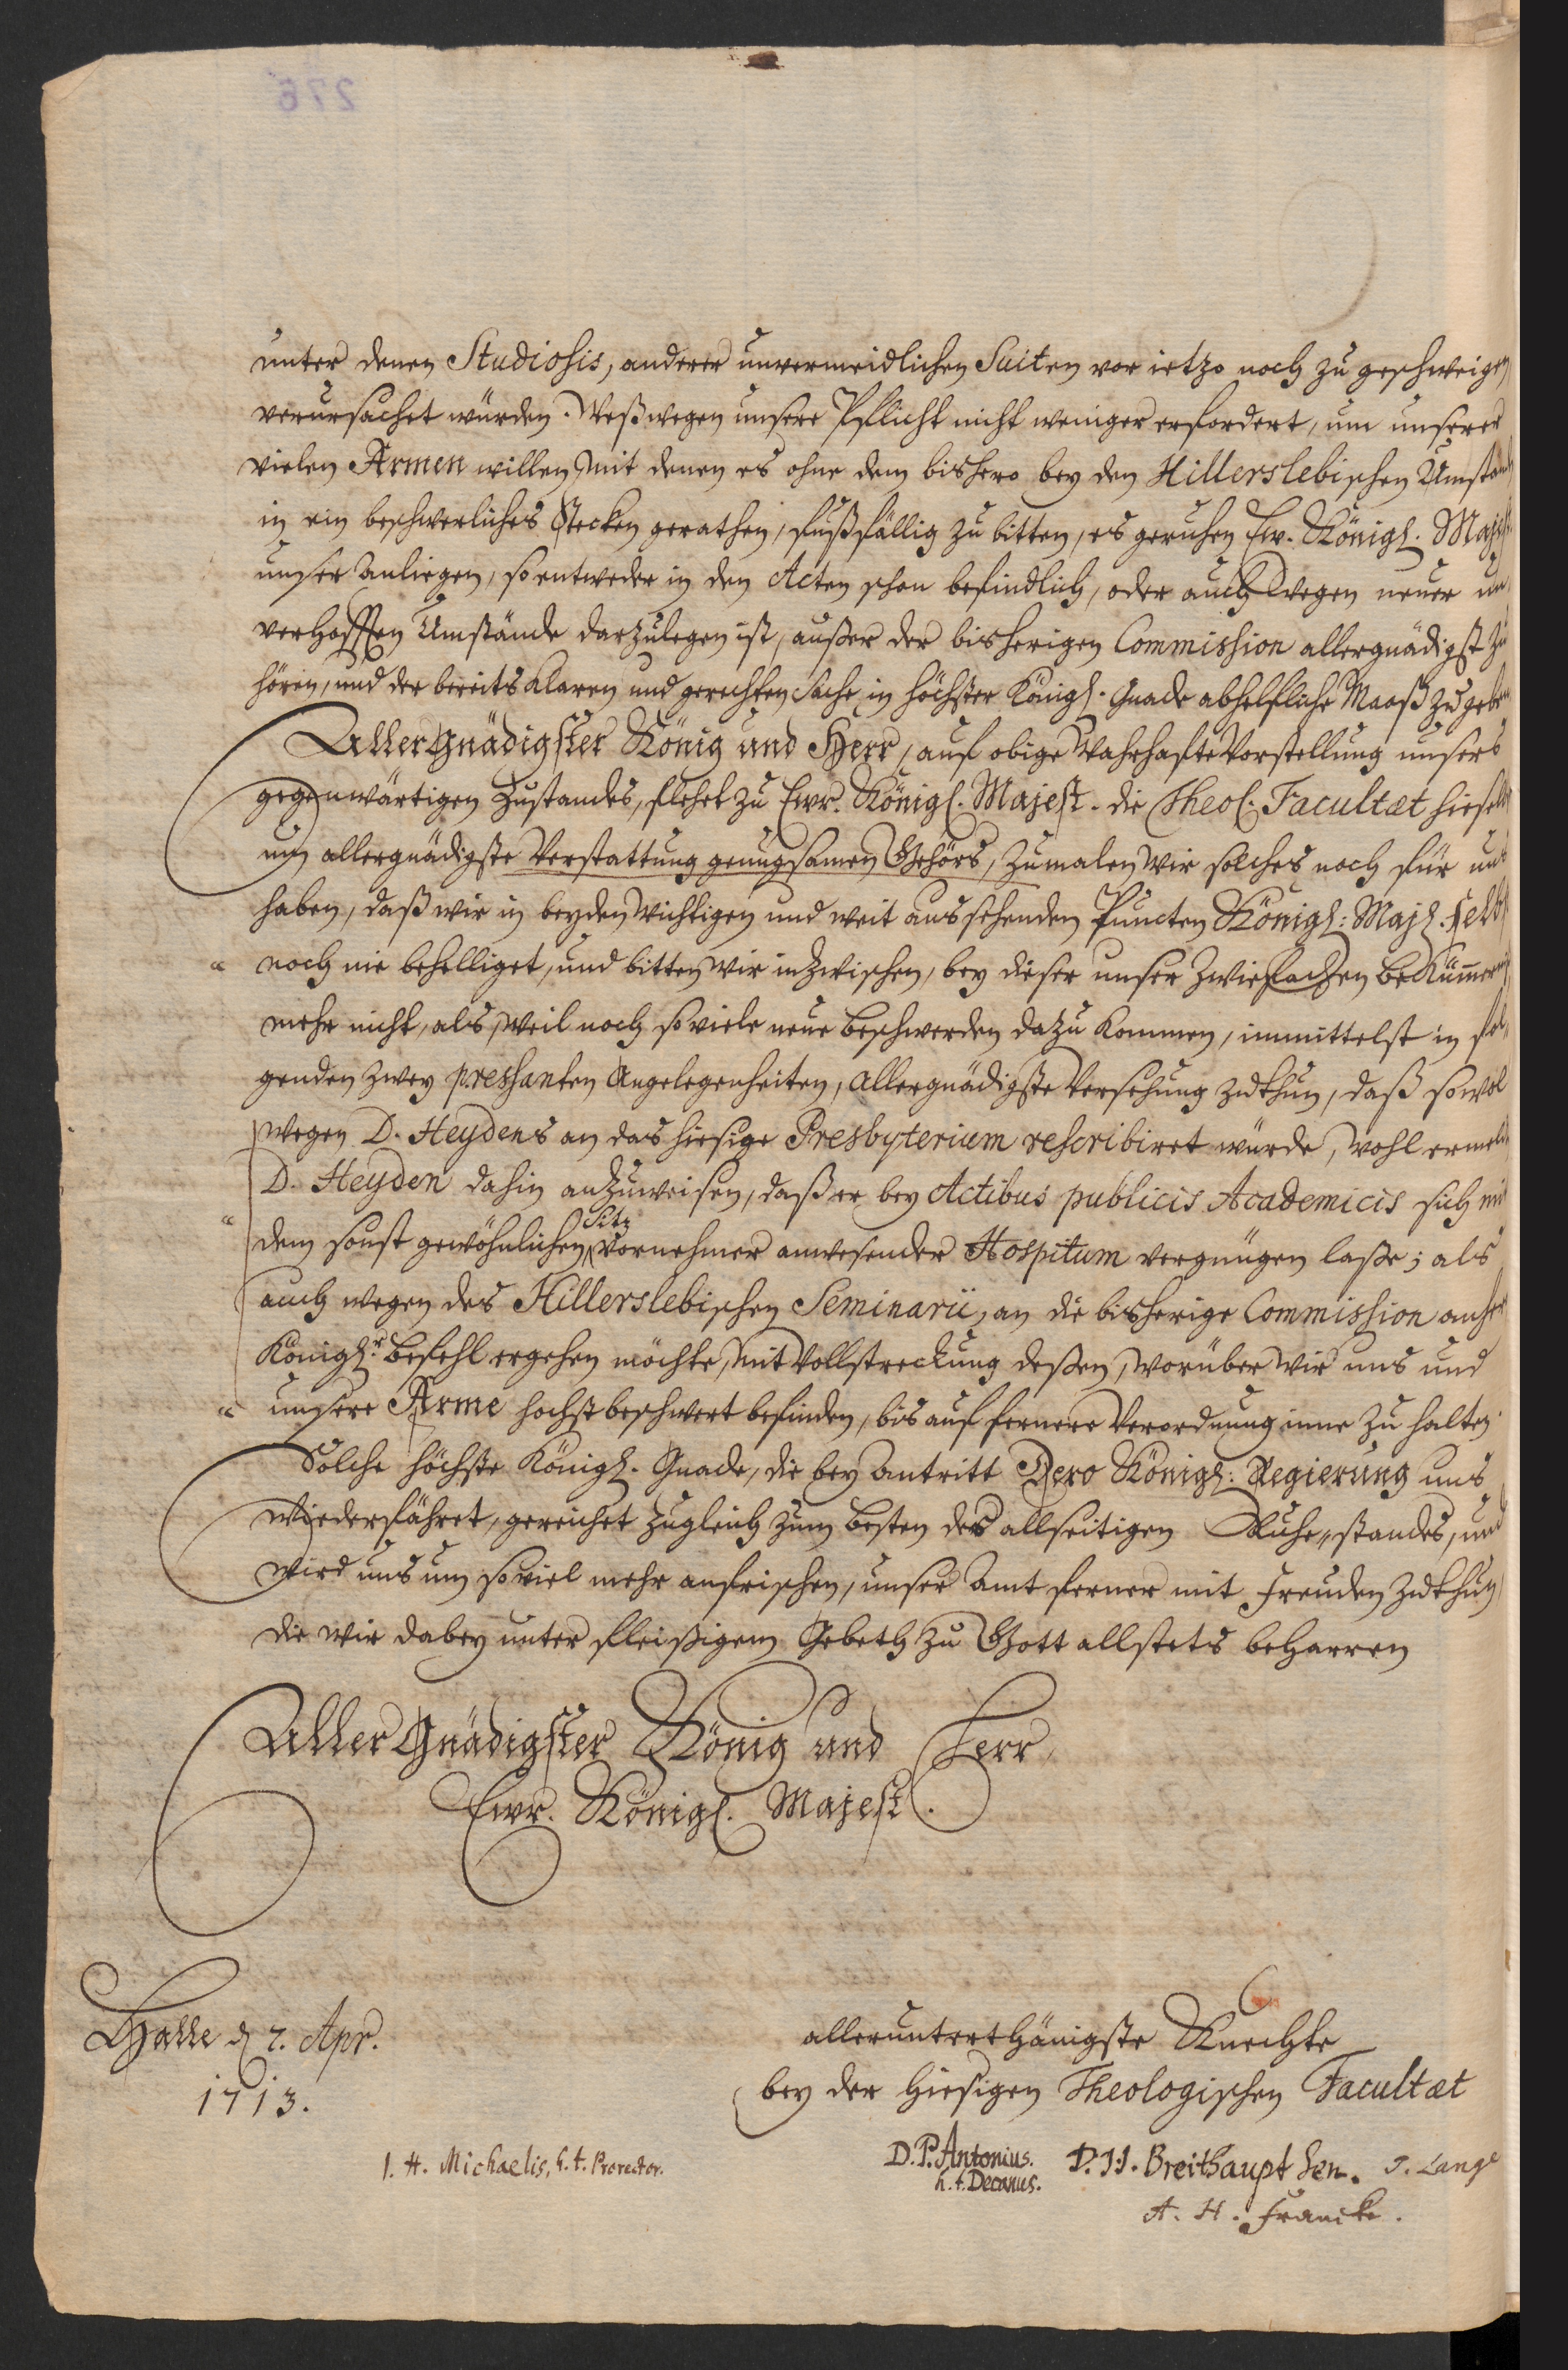 276
unter denen Studiosis, anderer unvermeidlichen Suiten vor ietzo noch zu geschweigen
verursachet würden. Weßwegen unsere Pflicht nicht weniger erfordert, um unserer
vielen Armen willen, mit denen es ohne dem bishero bey den Hillerslebischen Umständ
in ein beschwerliches Stecken gerathen, fußfällig zu bitten, es geruhen Ew. Königl. Majest
unser Anliegen, so entweder in den Acten schon befindlich, oder auch wegen neuer un
verhofften Umstände darzulegen ist, außer der bisherigen Commission allergnädigst zu
hören, und der bereits klaren und gerechten Sache in höchster Königl. Gnade abhelfliche Maaß zu geben
AllerGnädigster König und Herr, auf obige wahrhafte Vorstellung unsers
gegenwärtigen Zustandes, flehet zu Ewr. Königl. Majest. die Theol. Facultæt hieselbst
um allergnädigste Verstattung genugsamen Gehörs, zumalen wir solches noch für uns
haben, daß wir in beyden wichtigen und weit aussehenden Puncten Königl: Majl. selbst
noch nie behelliget, und bitten wir inzwischen, bey dieser unser zwiefachen Bekümmerniß
mehr nicht, als, weil noch so viele neue Beschwerden dazu kommen, immittelst in fol
genden zwey pressanten Angelegenheiten, Allergnädigste Versehung zu thun, daß sowol
wegen D. Heydens an das hiesige Presbyterium rescribiret würde, wohl ermeld
D. Heyden dahin anzuweisen, daß er bey Actibus publicis Academicis sich mit
dem sonst gewöhnlichen Sitz vornehmer anwesender Hospitum vergnügen laße; als
auch wegen des Hillerslebischen Seminarii, an die bisherige Commission anher
Königl.r Befehl ergehen möchte, mit Vollstreckung deßen, worüber wir uns und
unsere Arme hochst beschwert befinden, bis auf fernere Verordnung inne zu halten.
Solche höchste Königl. Gnade, die bey Antritt Dero Königl: Regierung uns
wiederfähret, gereichet zugleich zum Besten des allseitigen Ruhestandes, und
wird uns um so viel mehr anfrischen, unser Amt ferner mit Freuden zu thun
die wir dabey unter fleißigem Gebeth zu Gott allstets beharren
AllerGnädigster König und Herr,
Ewr. Königl. Majest.
Halle d 7. Apr.
1713.
allerunterthänigste Knechte
bey der hiesigen Theologischen Facultæt
I. H. Michaelis, h. t. Prorector.
D. P. Antonius.
h. t. Decanus.
D. J. J. Breithaupt Sen.
J. Lange
A. H. Francke.